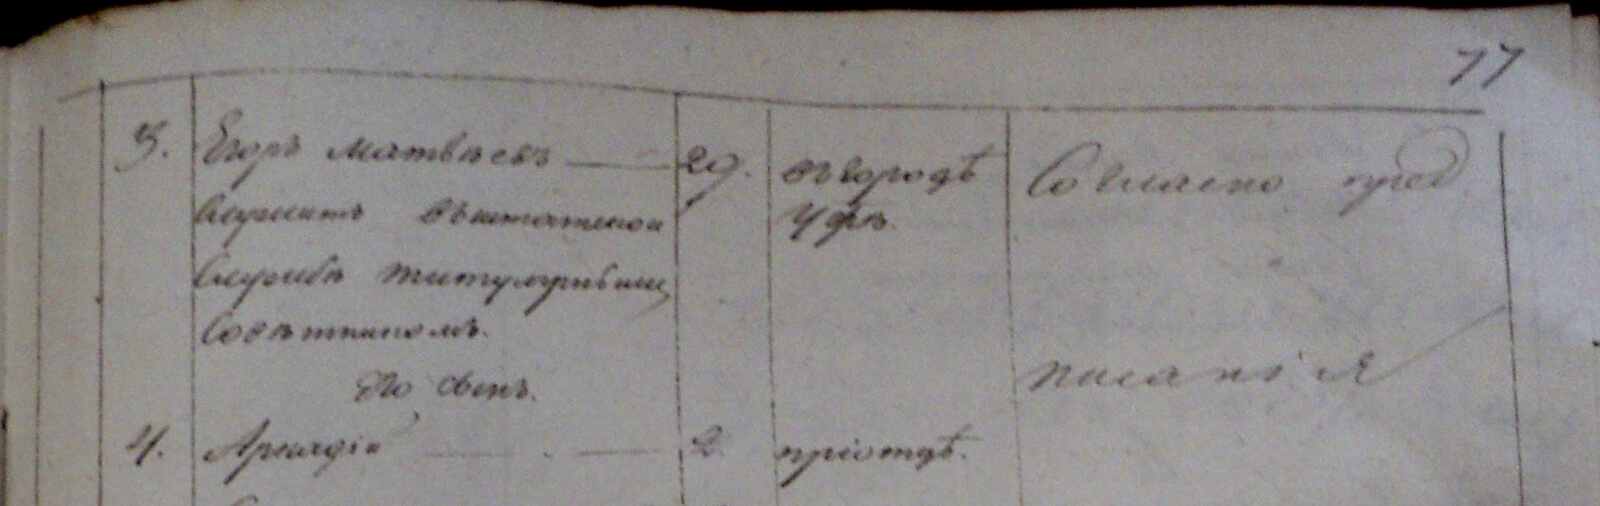 77
3. Егоръ Матвѣевъ 29. въ городѣ Согласно пред
Служитъ въ штатной Уфѣ.
Службѣ Титулярнымъ
Совѣтникомъ.
писанія
Его сынъ.
4. Аркадій 2. при отцѣ.